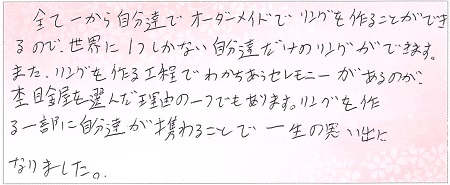 全て一から自分達でオーダーメイドでリングを作ることができ
るので、世界に1つしかない自分達だけのリングができます。
また、リングを作る工程でわかちあうセレモニーがあるのが、
杢目金屋を選んだ理由の一つでもあります。リングを作
る一部に自分達が携わることで一生の思い出に
なりました。